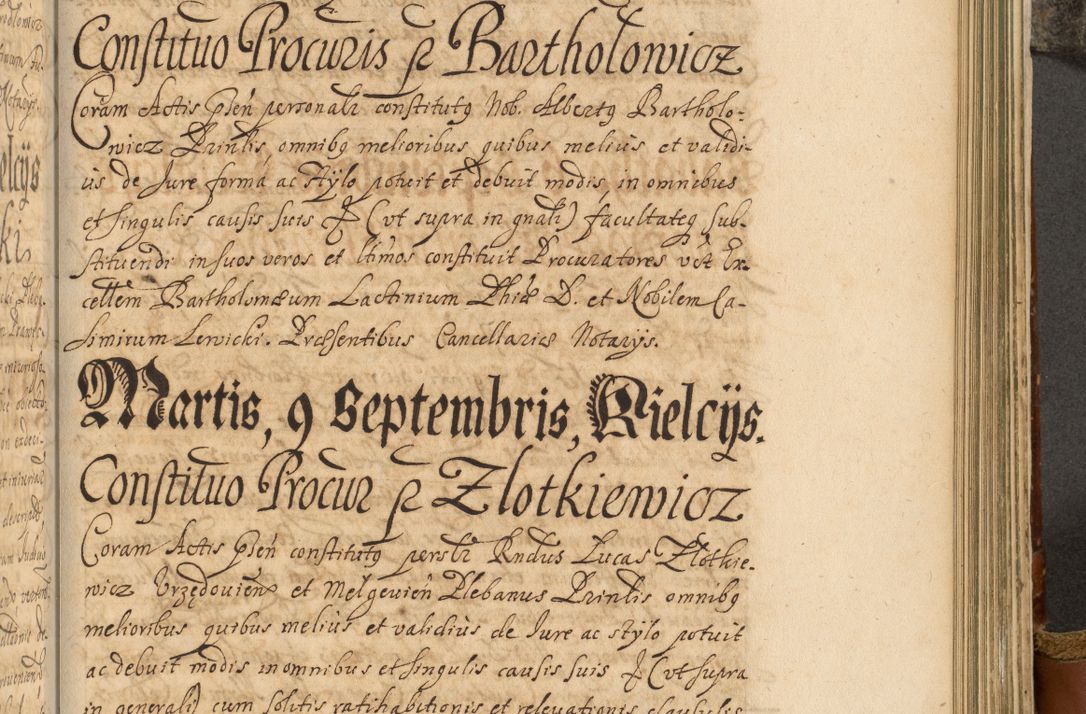 Constituo Procuris p Bartholowicz
Coram Actis pñen personali constitutq Nob. Albertq Bartholo-
wicz Prinlis omnibq melioribus quibus melius et validi-
us de Jure forma ac stylo potuit et debuit modis, in omnibus
et singulis causis suis (vt supra in gnali) facultateq sub-
stituendi in suos veros et ltimos constituit Procuratores vět Ex-
cellem Bartholomæum Lactinium Phiæ D. et Nobilem Ca-
simirum Lewicki. Præsentibus Cancellariæ Notarijs.
Martis, 9 Septembris, Kielcijs.
Constituo Procur p Zlotkiewicz
Coram Actis pñen constitutq perslr Rndus Lucas Zlotkie-
wicz Vrzędovien et Melgevień Plebanus Prinlis omnibq
melioribus quibus melius et validius de Jure ac stylo potuit
ac debuit modis in omnibus et singulis causis suis (vt supra
in generali) cum solitis ratihabitionis et relevationis clausulis